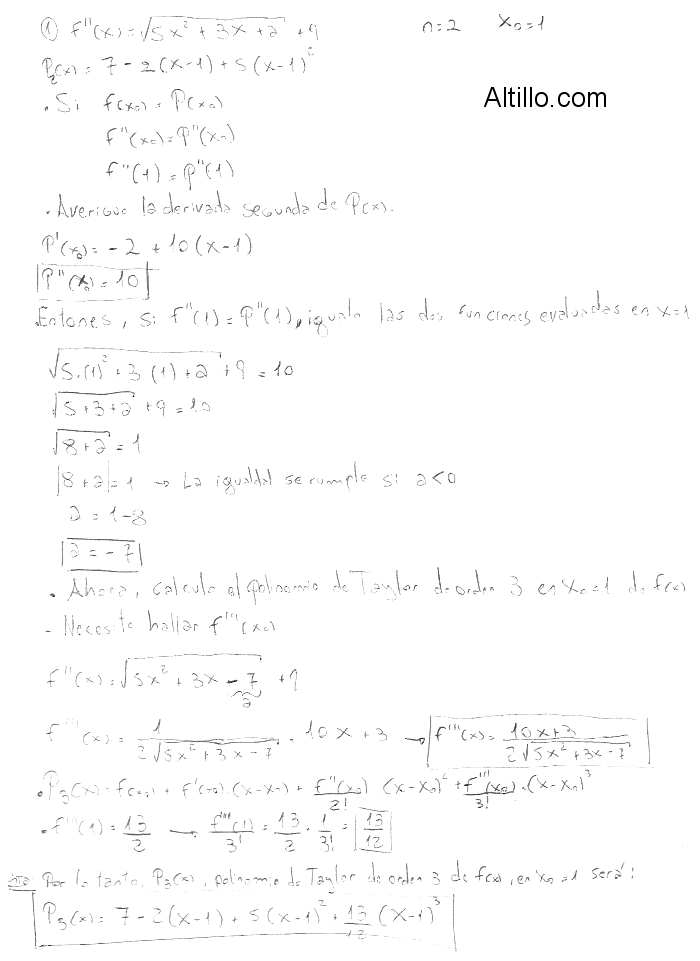 ① f''(x) = √5x² + 3x + a + 9 n=2 x₀=1
P₂(x) = 7 - 2(x-1) + 5(x-1)²
Altillo.com
. Si f(x₀) = P(x₀)
f''(x₀) = P''(x₀)
f''(1) = P''(1)
. Averiguo la derivada segunda de P(x).
P'(x₀) = -2 + 10(x-1)
P''(x₀) = 10
.Entones, si f''(1) = P''(1), igualo las dos funciones evaluadas en x=1
√5.(1)² + 3(1) + a + 9 = 10
√5+3+a + 9 = 10
√8+a = 1
|8+a| = 1 → La igualdad se cumple si a<0
a = 1-8
a = -7
. Ahora, calculo el polinomio de Taylor de orden 3 en x₀=1 de f(x)
- Necesito hallar f'''(x₀)
f''(x) = √5x² + 3x - 7 + 9
a
f'''(x) = 1/2√5x²+3x-7 . 10x+3 → f'''(x) = 10x+3/2√5x²+3x-7
.P₃(x) = f(x₀) + f'(x₀).(x-x₀) + f''(x₀)/2! (x-x₀)² + f'''(x₀)/3! .(x-x₀)³
. f'''(1) = 13/2 → f'''(1)/3! = 13/2 . 1/3! = 13/12
Por lo tanto, P₃(x), polinomio de Taylor de orden 3 de f(x), en x₀=1 será:
P₃(x) = 7 - 2(x-1) + 5(x-1)² + 13/12 (x-1)³